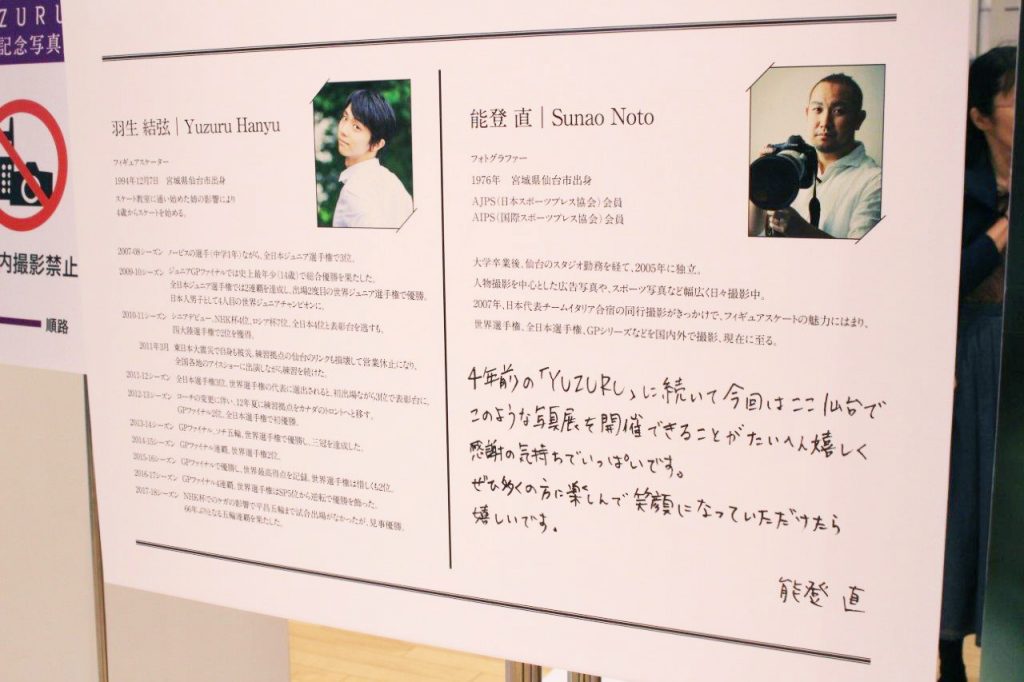 ZURU
記念写真
内撮影禁止
順路
羽生 結弦 | Yuzuru Hanyu
フィギュアスケーター
1994年12月7日 宮城県仙台市出身
スケート教室に通い始めた姉の影響により
4歳からスケートを始める。
2007-08シーズン ノービスの選手(中学1年)ながら、全日本ジュニア選手権で3位。
2009-10シーズン ジュニアGPファイナルでは史上最年少(14歳)で総合優勝を果たした。
全日本ジュニア選手権では2連覇を達成し、出場2度目の世界ジュニア選手権で優勝。
日本人男子として4人目の世界ジュニアチャンピオンに。
2010-11シーズン シニアデビュー。NHK杯4位、ロシア杯7位、全日本4位と表彰台を逃すも、
四大陸選手権で2位を獲得。
2011年3月 東日本大震災で自身も被災。練習拠点の仙台のリンクも損壊して営業休止になり、
全国各地のアイスショーに出演しながら練習を続けた。
2011-12シーズン 全日本選手権3位。世界選手権の代表に選出されると、初出場ながら3位で表彰台に。
2012-13シーズン コーチの変更に伴い、12年夏に練習拠点をカナダのトロントへと移す。
GPファイナル2位、全日本選手権で初優勝。
2013-14シーズン GPファイナル、ソチ五輪、世界選手権で優勝し、三冠を達成した。
2014-15シーズン GPファイナル連覇、世界選手権2位。
2015-16シーズン GPファイナルで優勝し、世界最高得点を記録。世界選手権は惜しくも2位。
2016-17シーズン GPファイナル4連覇、世界選手権はSP5位から逆転で優勝を飾った。
2017-18シーズン NHK杯でのケガの影響で平昌五輪まで試合出場がなかったが、見事優勝。
66年ぶりとなる五輪連覇を果たした。
能登 直 | Sunao Noto
フォトグラファー
1976年 宮城県仙台市出身
AJPS(日本スポーツプレス協会)会員
AIPS(国際スポーツプレス協会)会員
大学卒業後、仙台のスタジオ勤務を経て、2005年に独立。
人物撮影を中心とした広告写真や、スポーツ写真など幅広く日々撮影中。
2007年、日本代表チームイタリア合宿の同行撮影がきっかけで、フィギュアスケートの魅力にはまり、
世界選手権、全日本選手権、GPシリーズなどを国内外で撮影、現在に至る。
4年前の「YUZURU」に続いて今回はここ仙台で
このような写真展を開催できることがたいへん嬉しく
感謝の気持ちでいっぱいです。
ぜひ多くの方に楽しんで笑顔になっていただけたら
嬉しいです。
能登 直